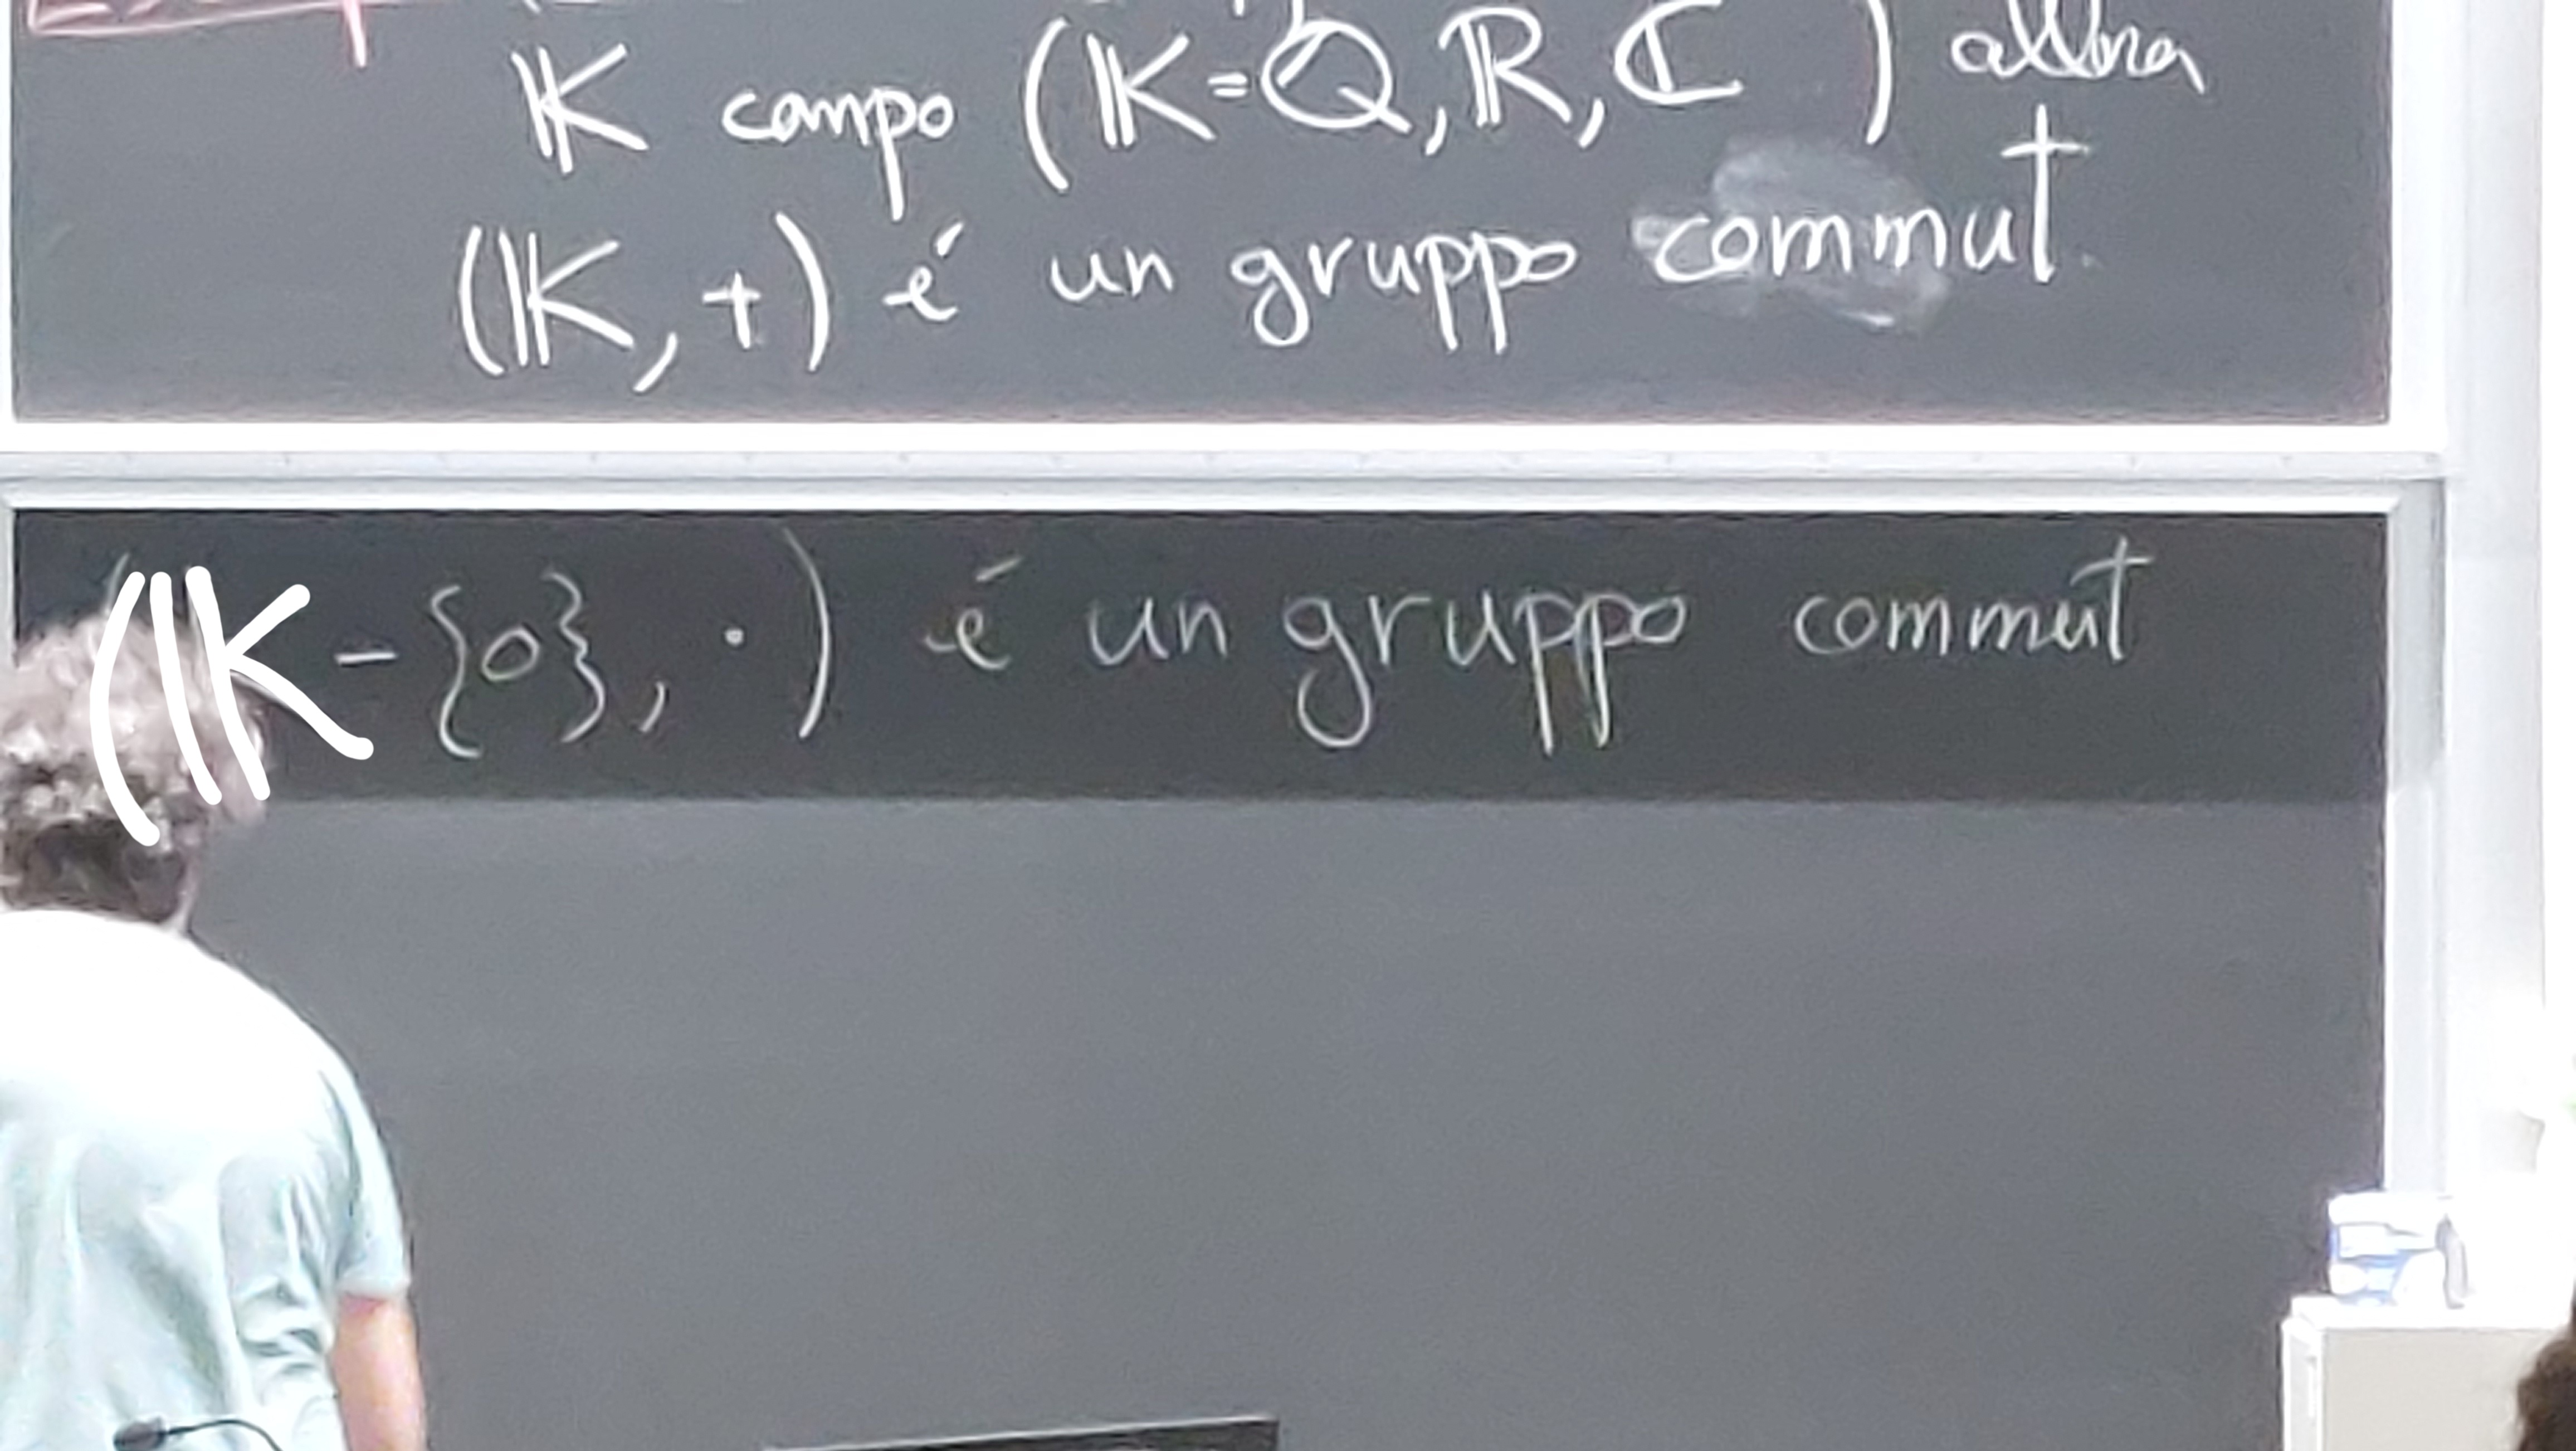 𝕂 campo (𝕂=ℚ,ℝ,ℂ ) allora
(𝕂,+) é un gruppo commut.
(𝕂-{0}, ·) é un gruppo commut